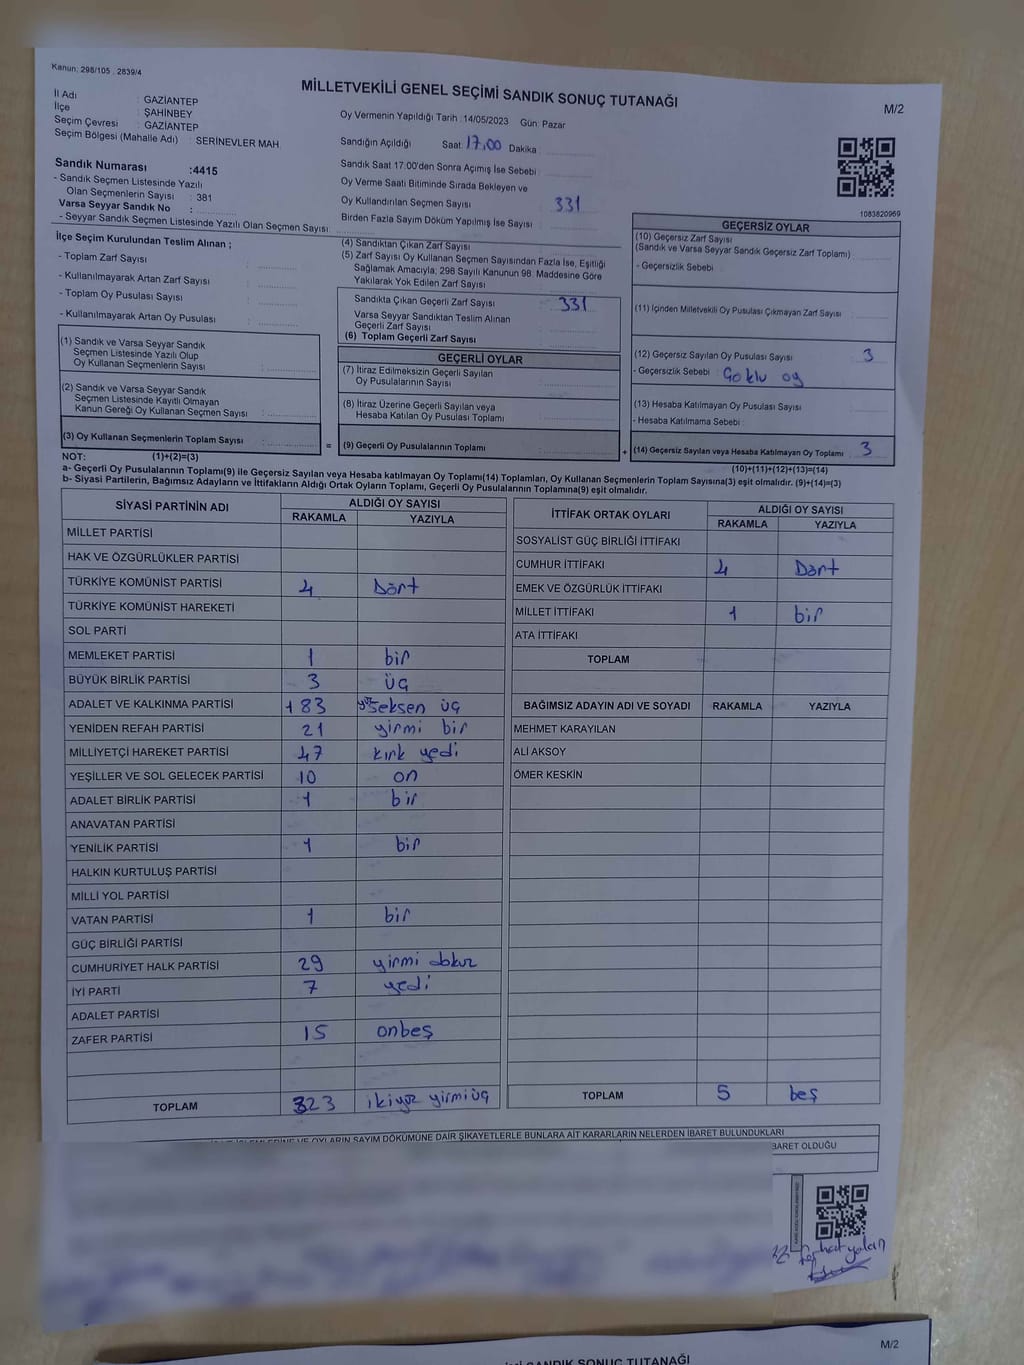 Kanun: 298/105 . 2839/4
MİLLETVEKİLİ GENEL SEÇİMİ SANDIK SONUÇ TUTANAĞI
M/2
İl Adı : GAZİANTEP
İlçe : ŞAHİNBEY
Seçim Çevresi : GAZİANTEP
Seçim Bölgesi (Mahalle Adı) : SERİNEVLER MAH.
Oy Vermenin Yapıldığı Tarih : 14/05/2023 Gün: Pazar
Sandığın Açıldığı Saat: 17,00 Dakika :
Sandık Saat 17:00'den Sonra Açımış İse Sebebi :
Oy Verme Saati Bitiminde Sırada Bekleyen ve
Oy Kullandırılan Seçmen Sayısı : 331
Birden Fazla Sayım Döküm Yapılmış İse Sayısı :
Sandık Numarası :4415
- Sandık Seçmen Listesinde Yazılı
Olan Seçmenlerin Sayısı : 381
Varsa Seyyar Sandık No :
- Seyyar Sandık Seçmen Listesinde Yazılı Olan Seçmen Sayısı:
1083820969
İlçe Seçim Kurulundan Teslim Alınan ;
- Toplam Zarf Sayısı :
- Kullanılmayarak Artan Zarf Sayısı :
- Toplam Oy Pusulası Sayısı :
- Kullanılmayarak Artan Oy Pusulası :
(1) Sandık ve Varsa Seyyar Sandık
Seçmen Listesinde Yazılı Olup
Oy Kullanan Seçmenlerin Sayısı :
(2) Sandık ve Varsa Seyyar Sandık
Seçmen Listesinde Kayıtlı Olmayan
Kanun Gereği Oy Kullanan Seçmen Sayısı :
(3) Oy Kullanan Seçmenlerin Toplam Sayısı :
(4) Sandıktan Çıkan Zarf Sayısı :
(5) Zarf Sayısı Oy Kullanan Seçmen Sayısından Fazla İse, Eşitliği
Sağlamak Amacıyla, 298 Sayılı Kanunun 98. Maddesine Göre
Yakılarak Yok Edilen Zarf Sayısı :
Sandıkta Çıkan Geçerli Zarf Sayısı : 331
Varsa Seyyar Sandıktan Teslim Alınan
Geçerli Zarf Sayısı :
(6) Toplam Geçerli Zarf Sayısı :
GEÇERLİ OYLAR
(7) İtiraz Edilmeksizin Geçerli Sayılan
Oy Pusulalarının Sayısı :
(8) İtiraz Üzerine Geçerli Sayılan veya
Hesaba Katılan Oy Pusulası Toplamı :
= (9) Geçerli Oy Pusulalarının Toplamı :
GEÇERSİZ OYLAR
(10) Geçersiz Zarf Sayısı
(Sandık ve Varsa Seyyar Sandık Geçersiz Zarf Toplamı)
- Geçersizlik Sebebi :
(11) İçinden Milletvekili Oy Pusulası Çıkmayan Zarf Sayısı :
(12) Geçersiz Sayılan Oy Pusulası Sayısı : 3
- Geçersizlik Sebebi : Çoklu oy
(13) Hesaba Katılmayan Oy Pusulası Sayısı :
- Hesaba Katılmama Sebebi :
+ (14) Geçersiz Sayılan veya Hesaba Katılmayan Oy Toplamı 3
NOT: (1)+(2)=(3)
(10)+(11)+(12)+(13)=(14)
a- Geçerli Oy Pusulalarının Toplamı(9) ile Geçersiz Sayılan veya Hesaba katılmayan Oy Toplamı(14) Toplamları, Oy Kullanan Seçmenlerin Toplam Sayısına(3) eşit olmalıdır. (9)+(14)=(3)
b- Siyasi Partilerin, Bağımsız Adayların ve İttifakların Aldığı Ortak Oyların Toplamı, Geçerli Oy Pusulalarının Toplamına(9) eşit olmalıdır.
SİYASİ PARTİNİN ADI ALDIĞI OY SAYISI
RAKAMLA YAZIYLA
MİLLET PARTİSİ
HAK VE ÖZGÜRLÜKLER PARTİSİ
TÜRKİYE KOMÜNİST PARTİSİ 4 Dört
TÜRKİYE KOMÜNİST HAREKETİ
SOL PARTİ
MEMLEKET PARTİSİ 1 bir
BÜYÜK BİRLİK PARTİSİ 3 üç
ADALET VE KALKINMA PARTİSİ 183 yüz seksen üç
YENİDEN REFAH PARTİSİ 21 yirmi bir
MİLLİYETÇİ HAREKET PARTİSİ 47 kırk yedi
YEŞİLLER VE SOL GELECEK PARTİSİ 10 on
ADALET BİRLİK PARTİSİ 1 bir
ANAVATAN PARTİSİ
YENİLİK PARTİSİ 1 bir
HALKIN KURTULUŞ PARTİSİ
MİLLİ YOL PARTİSİ
VATAN PARTİSİ 1 bir
GÜÇ BİRLİĞİ PARTİSİ
CUMHURİYET HALK PARTİSİ 29 yirmi dokuz
İYİ PARTİ 7 yedi
ADALET PARTİSİ
ZAFER PARTİSİ 15 onbeş
TOPLAM 323 ikiyüz yirmiüç
İTTİFAK ORTAK OYLARI ALDIĞI OY SAYISI
RAKAMLA YAZIYLA
SOSYALİST GÜÇ BİRLİĞİ İTTİFAKI
CUMHUR İTTİFAKI 4 Dört
EMEK VE ÖZGÜRLÜK İTTİFAKI
MİLLET İTTİFAKI 1 bir
ATA İTTİFAKI
TOPLAM
BAĞIMSIZ ADAYIN ADI VE SOYADI RAKAMLA YAZIYLA
MEHMET KARAYILAN
ALİ AKSOY
ÖMER KESKİN
TOPLAM 5 beş
OYLARIN SAYIM DÖKÜMÜNE DAİR ŞİKAYETLERLE BUNLARA AİT KARARLARIN NELERDEN İBARET BULUNDUKLARI
BARET OLDUĞU
M/2
SANDIK SONUÇ TUTANAĞI